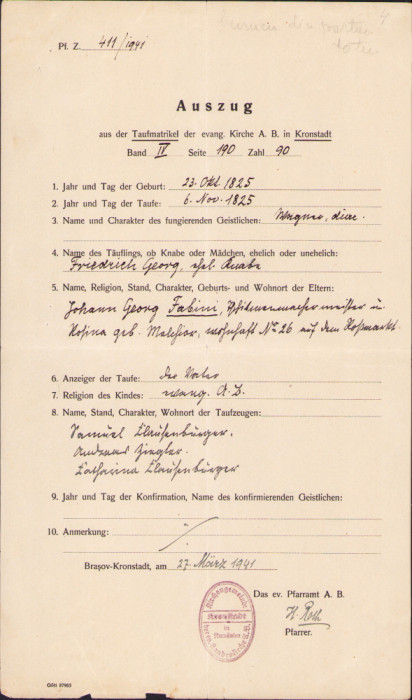 4
Pf. Z. 411/1941
Auszug
aus der Taufmatrikel der evang. Kirche A. B. in Kronstadt
Band IV Seite 190 Zahl 90
1. Jahr und Tag der Geburt: 23. Okt. 1825
2. Jahr und Tag der Taufe: 6. Nov. 1825
3. Name und Charakter des fungierenden Geistlichen: Wagner,
4. Name des Täuflings, ob Knabe oder Mädchen, ehelich oder unehelich:
Friedrich Georg, ehel. Knabe
5. Name, Religion, Stand, Charakter, Geburts- und Wohnort der Eltern:
Johann Georg Fabini, u.
Rosina geb. Melchior, wohnhaft No 26 auf dem Roßmarkt
6. Anzeiger der Taufe: Der Vater
7. Religion des Kindes: evang. A. B.
8. Name, Stand, Charakter, Wohnort der Taufzeugen:
Samuel Klausenburger.
Andreas Ziegler.
Katharina Klausenburger
9. Jahr und Tag der Konfirmation, Name des konfirmierenden Geistlichen:
10. Anmerkung:
Braşov-Kronstadt, am 27. März 1941
Das ev. Pfarramt A. B.
H. Roth
Pfarrer.
Kirchengemeinde
Kronstadt
in